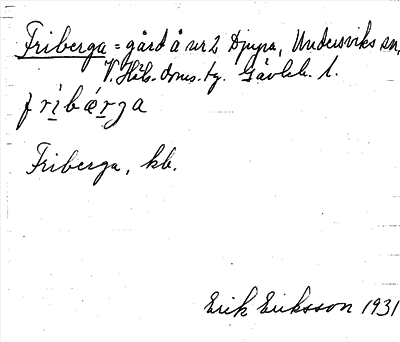 Friberga = gård å nr 2 Djupa, Undersviks sn,
V. Häls. doms. tg. Gävleb. l.
frìbǽrga
Friberga, kb.
Erik Eriksson 1931